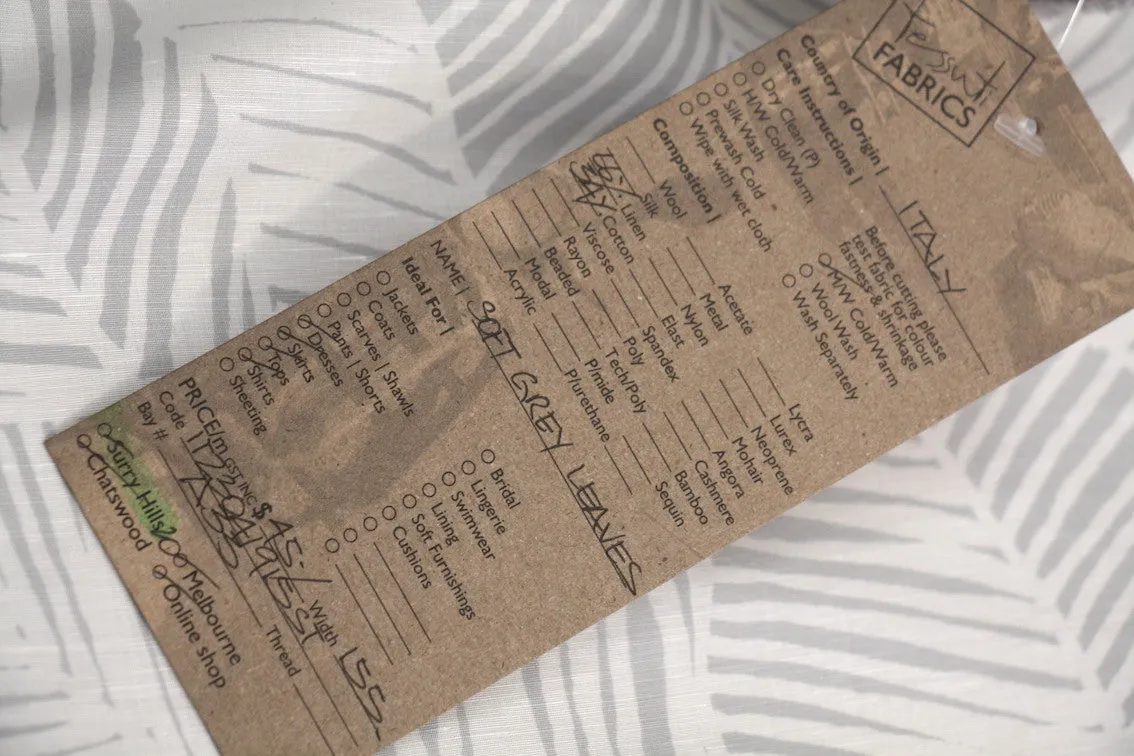 Tessuti
FABRICS
Country of Origin | ITALY
Care Instructions |
Dry Clean (P)
H/W Cold/Warm
Silk Wash
Prewash Cold
Wipe with wet cloth
Before cutting please
test fabric for colour
fastness & shrinkage
M/W Cold/Warm
Wool Wash
Wash Separately
Composition |
Wool
Silk
Linen
Cotton
Viscose
Rayon
Beaded
Modal
Acrylic
Acetate
Metal
Nylon
Elast
Spandex
Poly
Tech/Poly
P/mide
P/urethane
Lycra
Lurex
Neoprene
Mohair
Angora
Cashmere
Bamboo
Sequin
NAME | SOFT GREY LEAVES
Ideal For |
Jackets
Coats
Scarves | Shawls
Pants | Shorts
Dresses
Skirts
Tops
Shirts
Sheeting
Bridal
Lingerie
Swimwear
Lining
Soft Furnishings
Cushions
PRICE/m GST INC $ 45.- Width 155
Code
Bay #
Thread
Surry Hills
Melbourne
Chatswood
Online shop